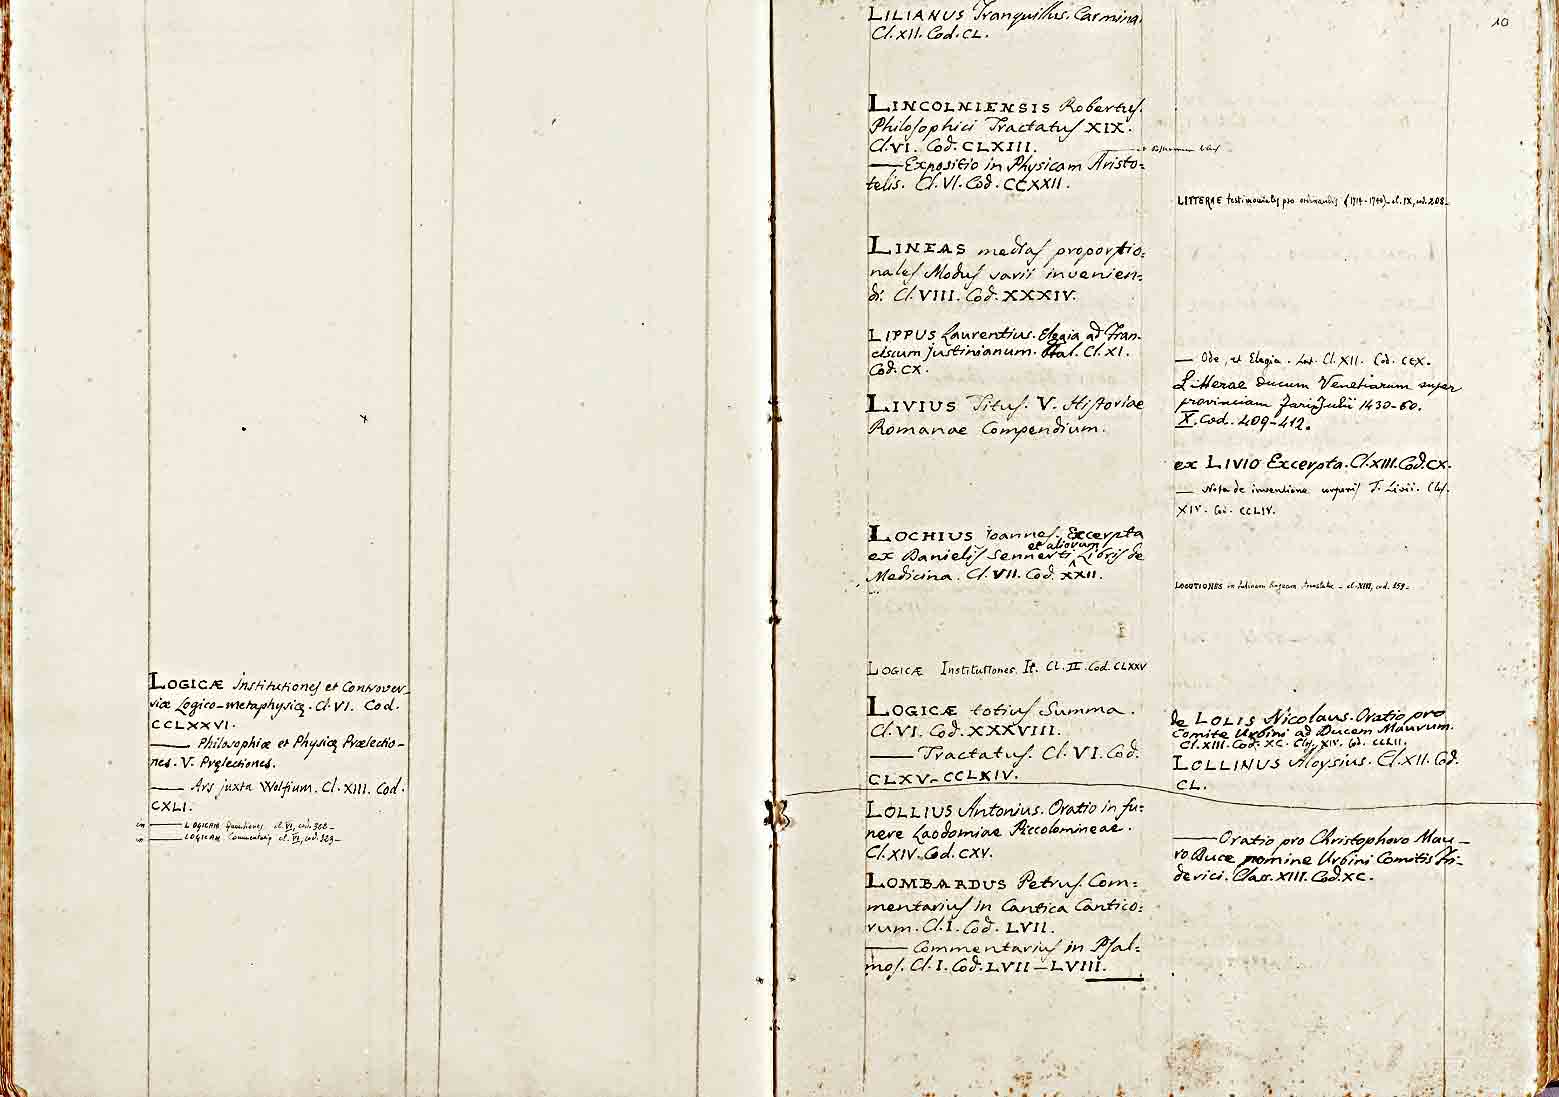 LOGICÆ Institutiones et Controver-
siæ Logico-metaphysicæ. Cl. VI. Cod.
CCLXXVI.
—— Philosophiæ et Physicæ Prælectio-
nes. V. Prælectiones.
—— Ars juxta Wolfium. Cl. XIII. Cod.
CXLI.
—— LOGICAM Quaestiones cl. VI, cod. 308 -
—— LOGICAM Commentarii cl. VI, cod. 309 -
10
LILIANUS Tranquillus. Carmina.
Cl. XII. Cod. CL.
LINCOLNIENSIS Robertus.
Philosophici Tractatus XIX.
Cl. VI. Cod. CLXIII.
—— Expositio in Physicam Aristo:
telis. Cl. VI. Cod. CCXXII.
LINEAS medias proportio:
nales Modus varii invenien:
di. Cl. VIII. Cod. XXXIV.
LIPPUS Laurentius. Elegia ad Fran-
ciscum Justinianum. Ital. Cl. XI.
Cod. CX.
LIVIUS Titus. V. Historiae
Romanae Compendium.
LOCHIUS Joannes. Excerpta
ex Danielis Sennerti et aliorum Libris de
Medicina. Cl. VII. Cod. XXII.
LOGICÆ Institutiones. It. Cl. II. Cod. CLXXV
LOGICÆ totius Summa.
Cl. VI. Cod. XXXVIII.
—— Tractatus. Cl. VI. Cod.
CLXV - CCLXIV.
LOLLIUS Antonius. Oratio in fu:
nere Laodomiae Piccolomineae.
Cl. XIV. Cod. CXV.
LOMBARDUS Petrus. Com:
mentarius in Cantica Cantico:
rum. Cl. I. Cod. LVII.
—— Commentarius in Psal:
mos. Cl. I. Cod. LVII — LVIII.
LITTERAE testimoniales pro ordinandis (1714-1740) - cl. IX, cod. 208 -
— Ode, et Elegia. Lat. Cl. XII. Cod. CCX.
Litterae ducum Venetiarum super
provinciam Fori Julii 1430-60.
X. Cod. 409-412.
ex LIVIO Excerpta. Cl. XIII. Cod. CX.
— Nota de inventione corporis T. Livii. Clas.
XIV. Cod. CCLIV.
LOCUTIONES in Latinam linguam - cl. XIII, cod. 159 -
de LOLIS Nicolaus. Oratio pro
Comite Urbini ad Ducem Maurum.
Cl. XIII. Cod. XC. Clas. XIV. Cod. CCLII.
LOLLINUS Aloysius. Cl. XII. Cod.
CL.
—— Oratio pro Christophoro Mau-
ro Duce nomine Urbini Comitis Fri-
derici. Class. XIII. Cod. XC.